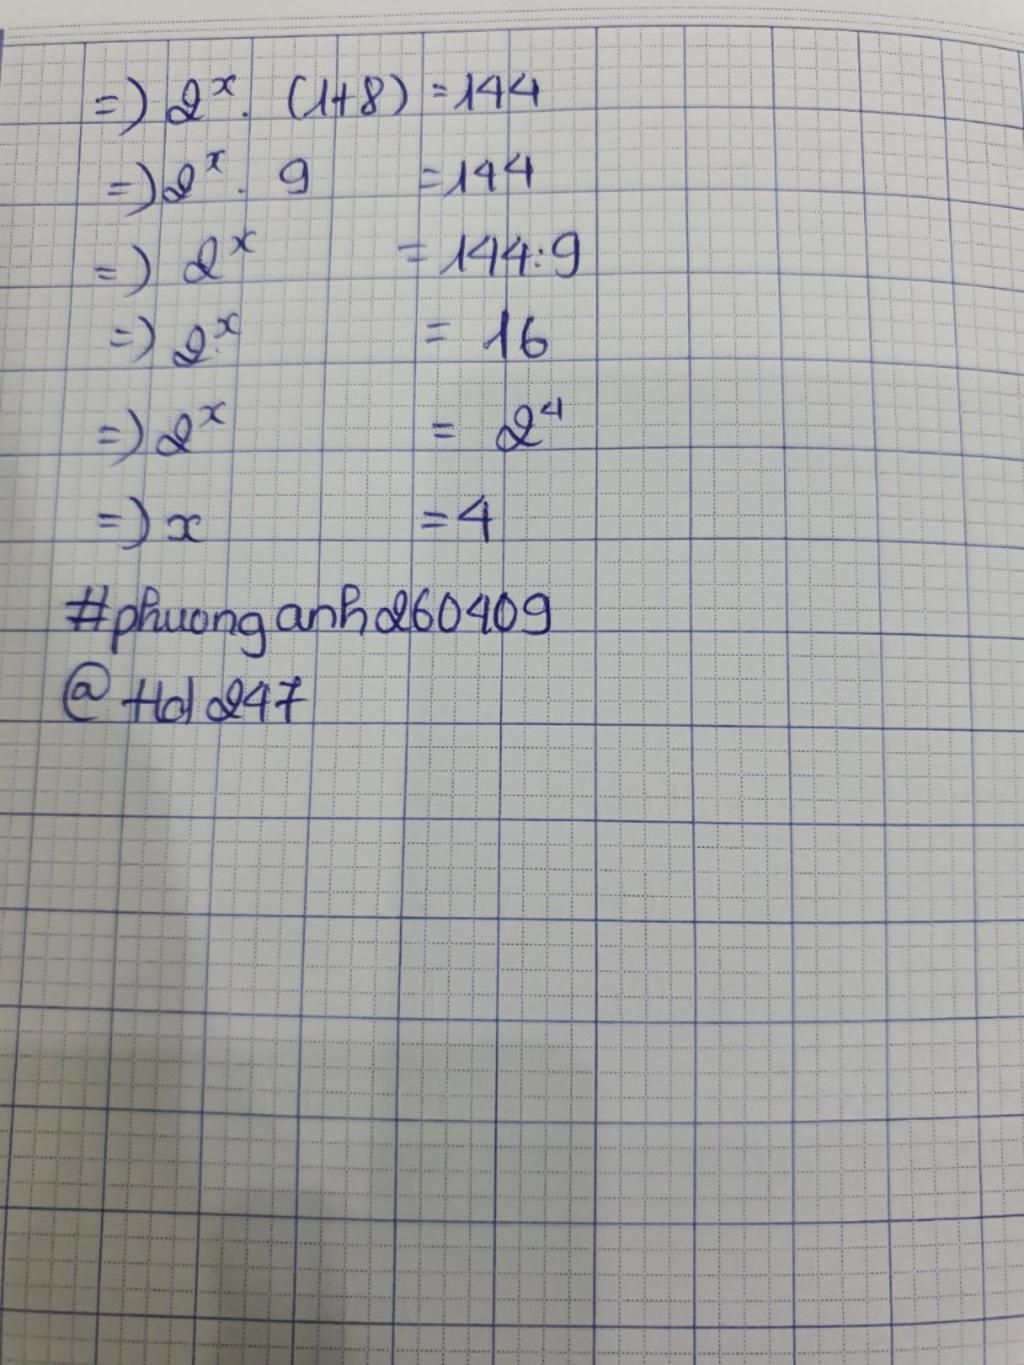 =) 2^x . (1+8) = 144
=) 2^x . 9 = 144
=) 2^x = 144:9
=) 2^x = 16
=) 2^x = 2^4
=) x = 4
#phuonganh260409
@Hd247